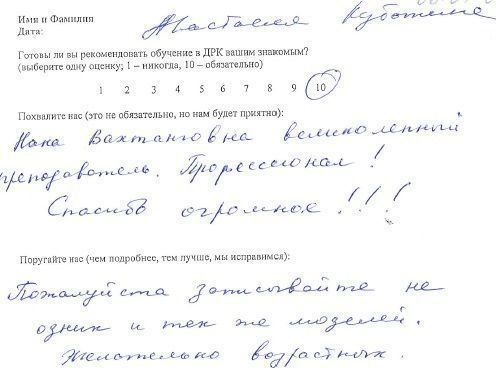 Имя и Фамилия Анастасия
Дата:
Готовы ли вы рекомендовать обучение в ДРК вашим знакомым?
(выберите одну оценку; 1 – никогда, 10 – обязательно)
1 2 3 4 5 6 7 8 9 10
Похвалите нас (это не обязательно, но нам будет приятно):
Нана Вахтанговна великолепный
преподаватель. Профессионал!
Спасибо огромное!!!
Поругайте нас (чем подробнее, тем лучше, мы исправимся):
Пожалуйста записывайте не
одних и тех же моделей.
Желательно возрастных.